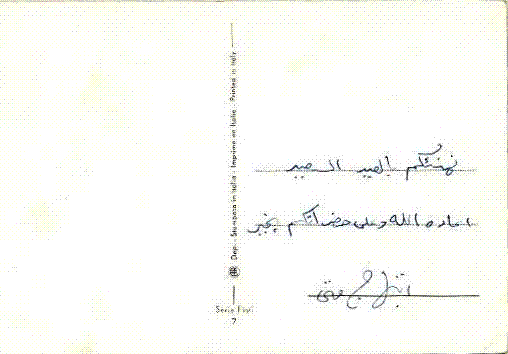 نهنئكم بالعيد السعيد
اعاده الله وعلى حضراتكم بخير
Dep. - Stampato in Italia - Imprimé en Italie - Printed in Italy
Serie Fiori
7